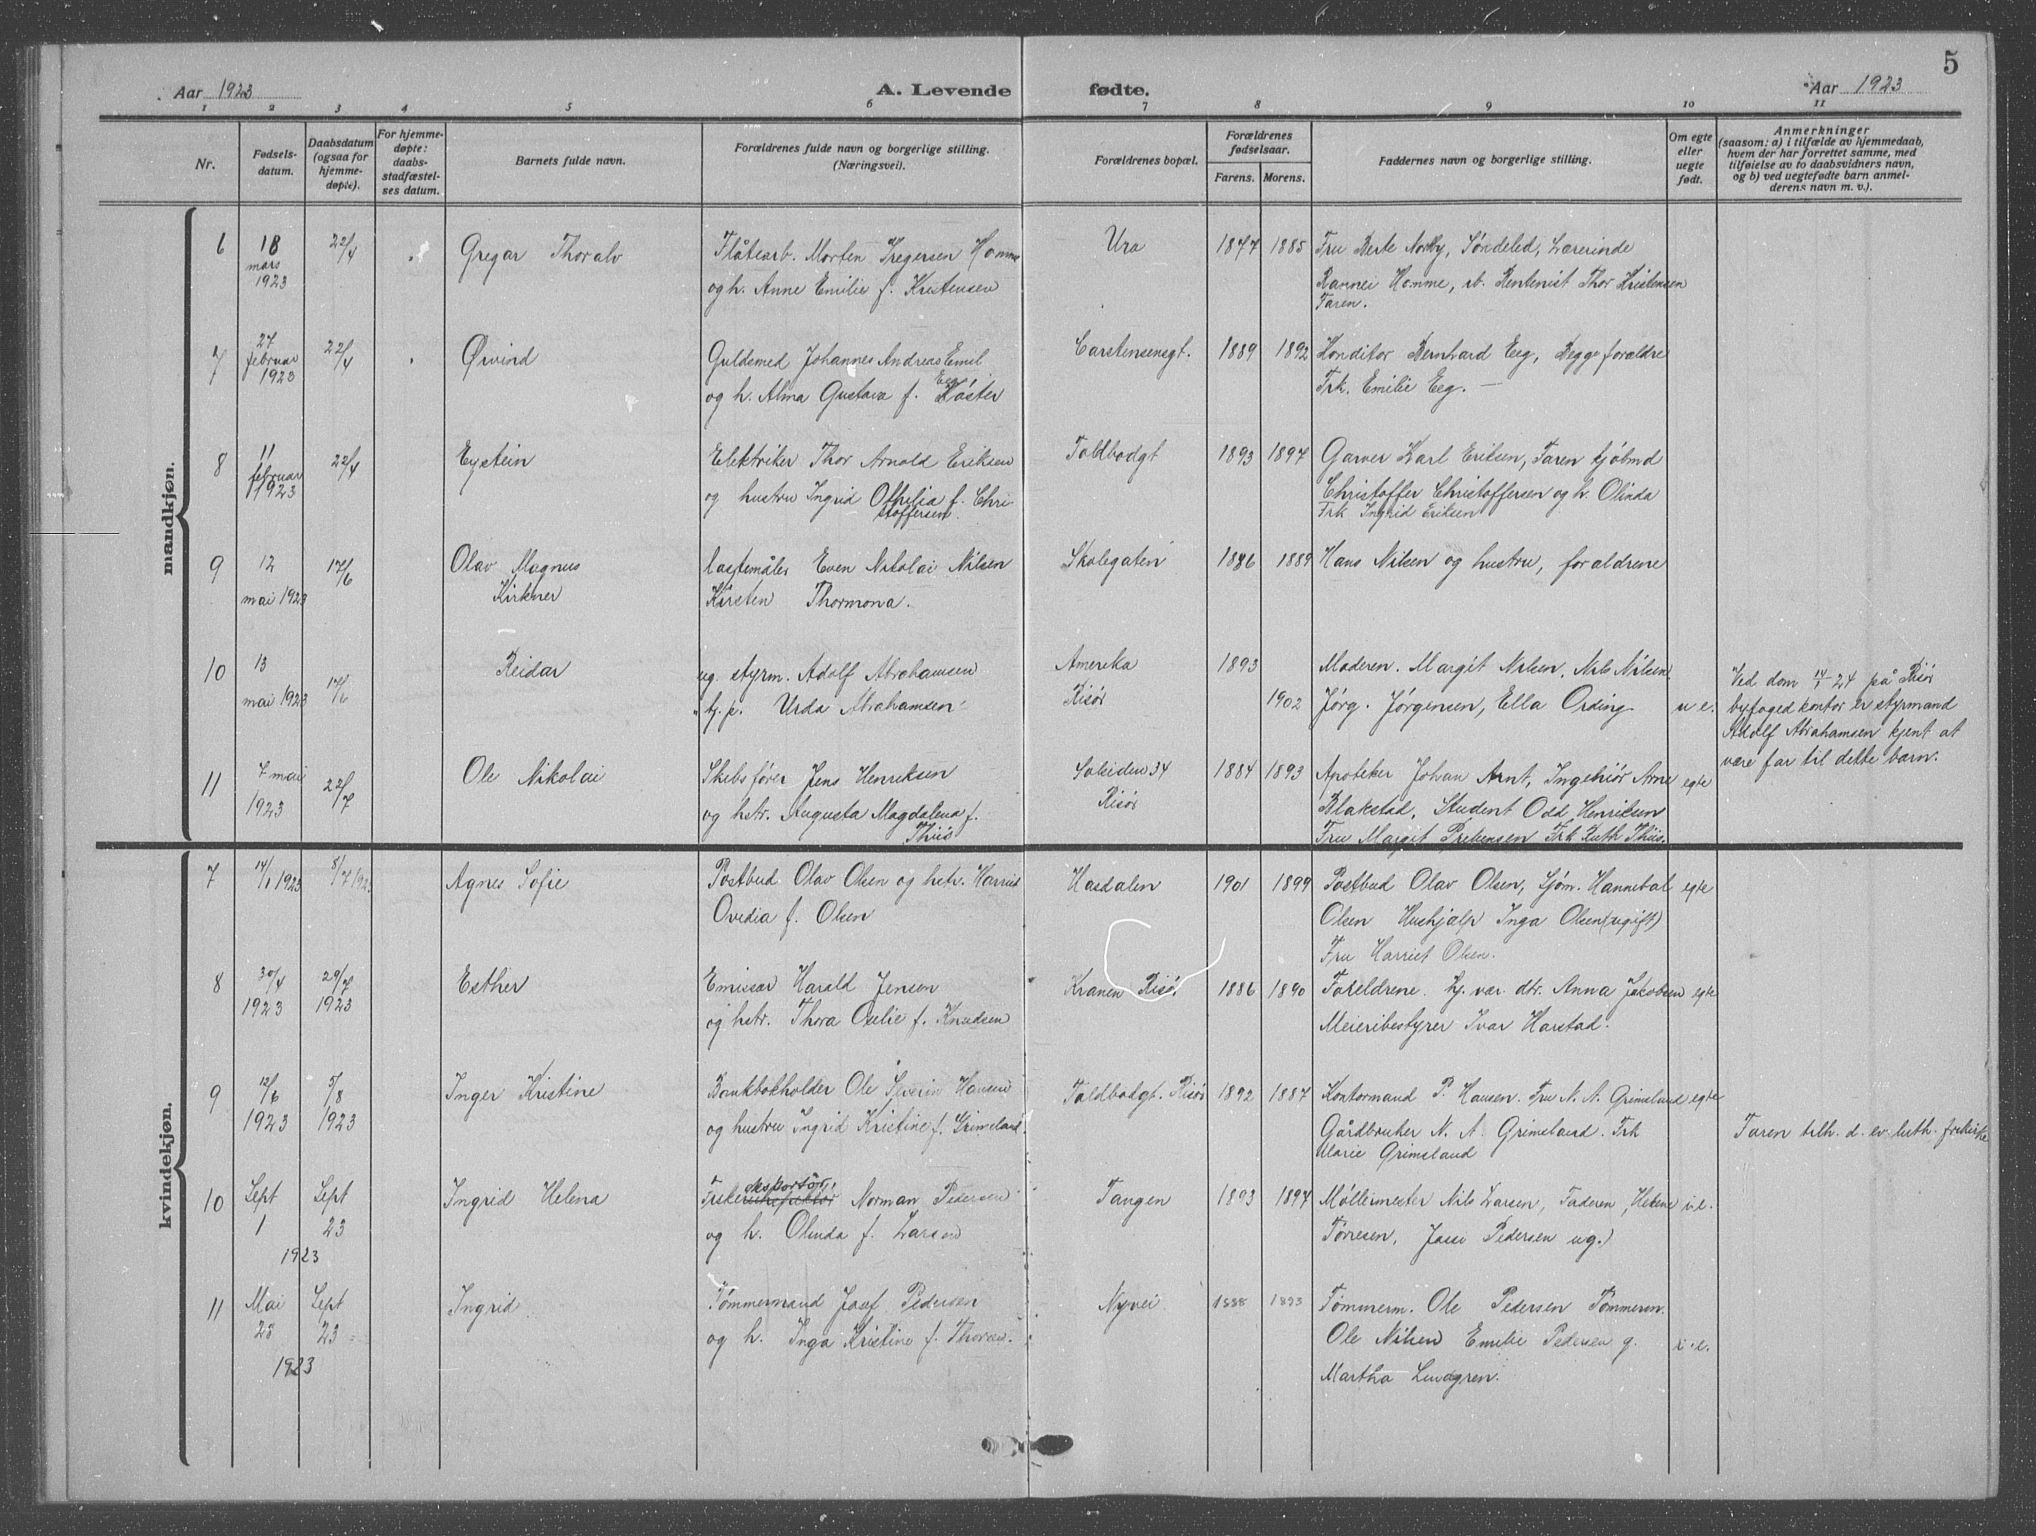 5
Aar 1923 A. Levende fødte. Aar 1923
1 2 3 4 5 6 7 8 9 10 11
Nr.
Fødsels-
datum.
Daabsdatum
(ogsaa for
hjemme-
døpte).
For hjemme-
døpte:
daabs-
stadfæstel-
ses datum.
Barnets fulde navn.
Forældrenes fulde navn og borgerlige stilling.
(Næringsvei).
Forældrenes bopæl.
Forældrenes
fødselsaar.
Farens. Morens.
Faddernes navn og borgerlige stilling.
Om egte
eller
uegte
født.
Anmerkninger
(saasom: a) i tilfælde av hjemmedaab,
hvem der har forrettet samme, med
tilføielse av to daabsvidners navn,
og b) ved uegtefødte barn anmel-
derens navn m. v.).
mandkjøn.
6 18 22/4 Gregar Thoralv Flåtearb. Morten Gregersen Homme Ura 1847 1885 Fru Berte Norby, Søndeled, Lærerinde
mars
1923 og h. Anne Emilie f. Kristensen Ravnei Homme, rb. Rentenist Thor Kristensen
Faren.
7 27 22/4 Øivind Guldsmed Johannes Andreas Emil Carstensensgt. 1889 1892 Konditor Bernhard Eeg, Begge forældre
februar
1923 Eeg
og h. Alma Gustava f. Köster Frk. Emilie Eeg. —
8 11 22/4 Eystein Elektriker Thor Arnold Eriksen Toldbodgt 1893 1897 Garver Karl Eriksen, Faren kjøbmd
februar
1923 og hustru Ingrid Othilia f. Chri- Christoffer Christoffersen og h. Olinda
stoffersen. Frk Ingrid Eriksen
9 12 17/6 Olav Magnus lastemåler Even Nikolai Nilsen Skolegaten 1886 1889 Hans Nilsen og hustru, forældrene
mai 1923 Kirkner Kirsten Thormona.
10 13 17/6 Reidar ug. styrm. Adolf Abrahamsen Amerika 1893 Moderen. Margit Nilsen, Nils Nilsen
mai 1923 tj. p. Urda Abrahamsen Risør 1902 Jørg. Jørgensen, Ella Ording u e.
Ved dom 14/1 24 på Risør
byfoged kontor er styrmand
Adolf Abrahamsen kjent at
være far til dette barn.
11 7 mai 22/7 Ole Nikolai Skibsfører Jens Henriksen Solsiden 34 1884 1893 Apoteker Johan Arnt, Ingebiør Arne egte
1923 og hstr. Augusta Magdalena f. Risør Blakstad, Student Odd Henriksen
Thiis Fru Margit Prebensen Frk Ruth Thiis.
kvindekjøn.
7 14/1 1923 8/7 1923 Agnes Sofie Postbud Olav Olsen og hstr. Harriet Hasdalen 1901 1899 Postbud Olav Olsen, Sjøm. Hannebal egte
Ovedia f. Olsen Olsen Hushjælp Inga Olsen (ugift)
Fru Harriet Olsen.
8 30/4 29/7 Esther Emissær Harald Jensen Kranen Risør 1886 1890 Foreldrene. Hj. vær. dtr. Anna Jakobsen egte
1923 1923 og hstr. Thora Oselie f. Knudsen Meieribestyrer Ivar Harstad.
9 12/6 5/8 Inger Kristine Bankbokholder Ole Severin Hansen Toldbodgt. Risør 1892 1887 Kontormand P. Hansen. Fru N. A. Grimsland egte
1923 1923 og hustru Ingrid Kristine f. Grimsland. Gårdbruker N. A. Grimsland. Frk
Marie Grimsland
Faren tilh. d. ev. luth. frikirke
10 Sept Sept Ingrid Helena Fiske eksportør Norman Pedersen Tangen 1893 1897 Møllemester Nils Larsen, Faderen, Helene i e.
1 23 og h. Olinda f. Larsen Tørresen, Jassi Pedersen ug.)
1923
11 Mai Sept Ingrid Tømmermand Josef Pedersen Nyvei 1888 1893 Tømmerm. Ole Pedersen Tømmerm.
28 23 og h. Inga Kristine f. Thorsen. Ole Nilsen Emelie Pedersen g. i. e.
1923 Martha Lundgren.